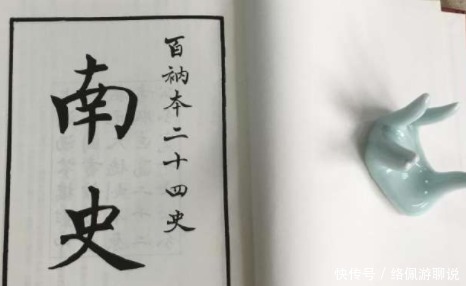 百衲本二十四史
南史
快传号/络佩游聊说